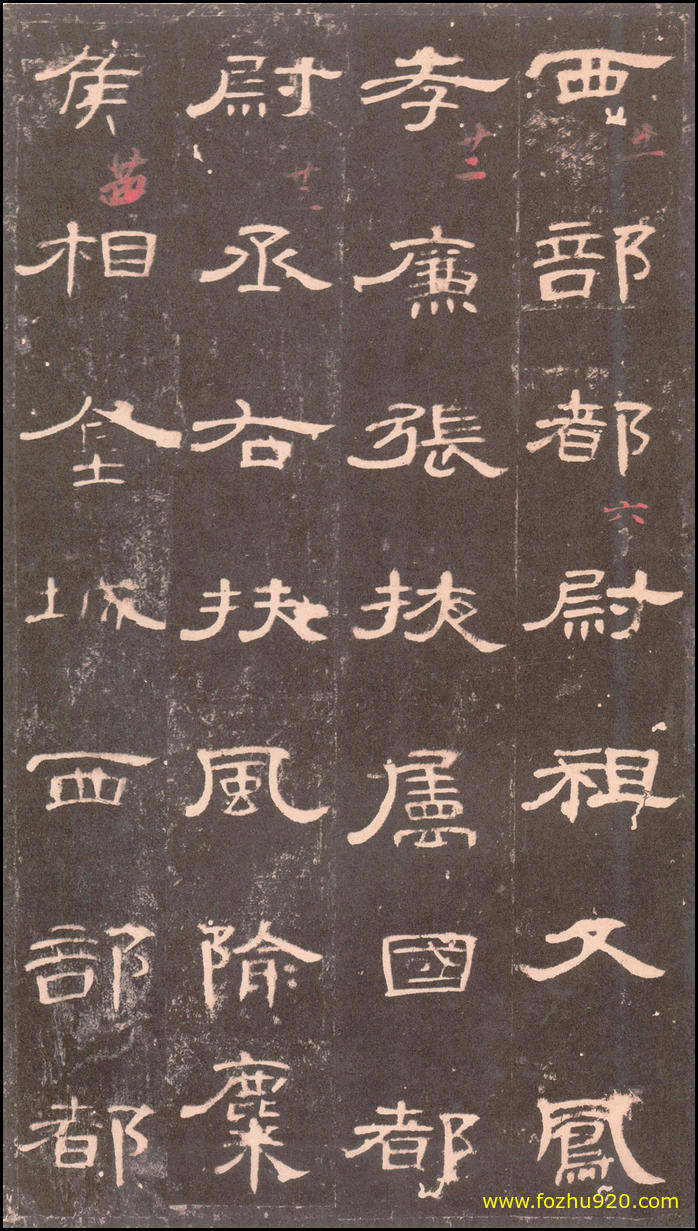 西部都尉祖父鳳
孝廉張掖屬國都
尉丞右扶風隃麋
侯相金城西部都
廿一
六
廿二
廿三
廿四
www.fozhu920.com